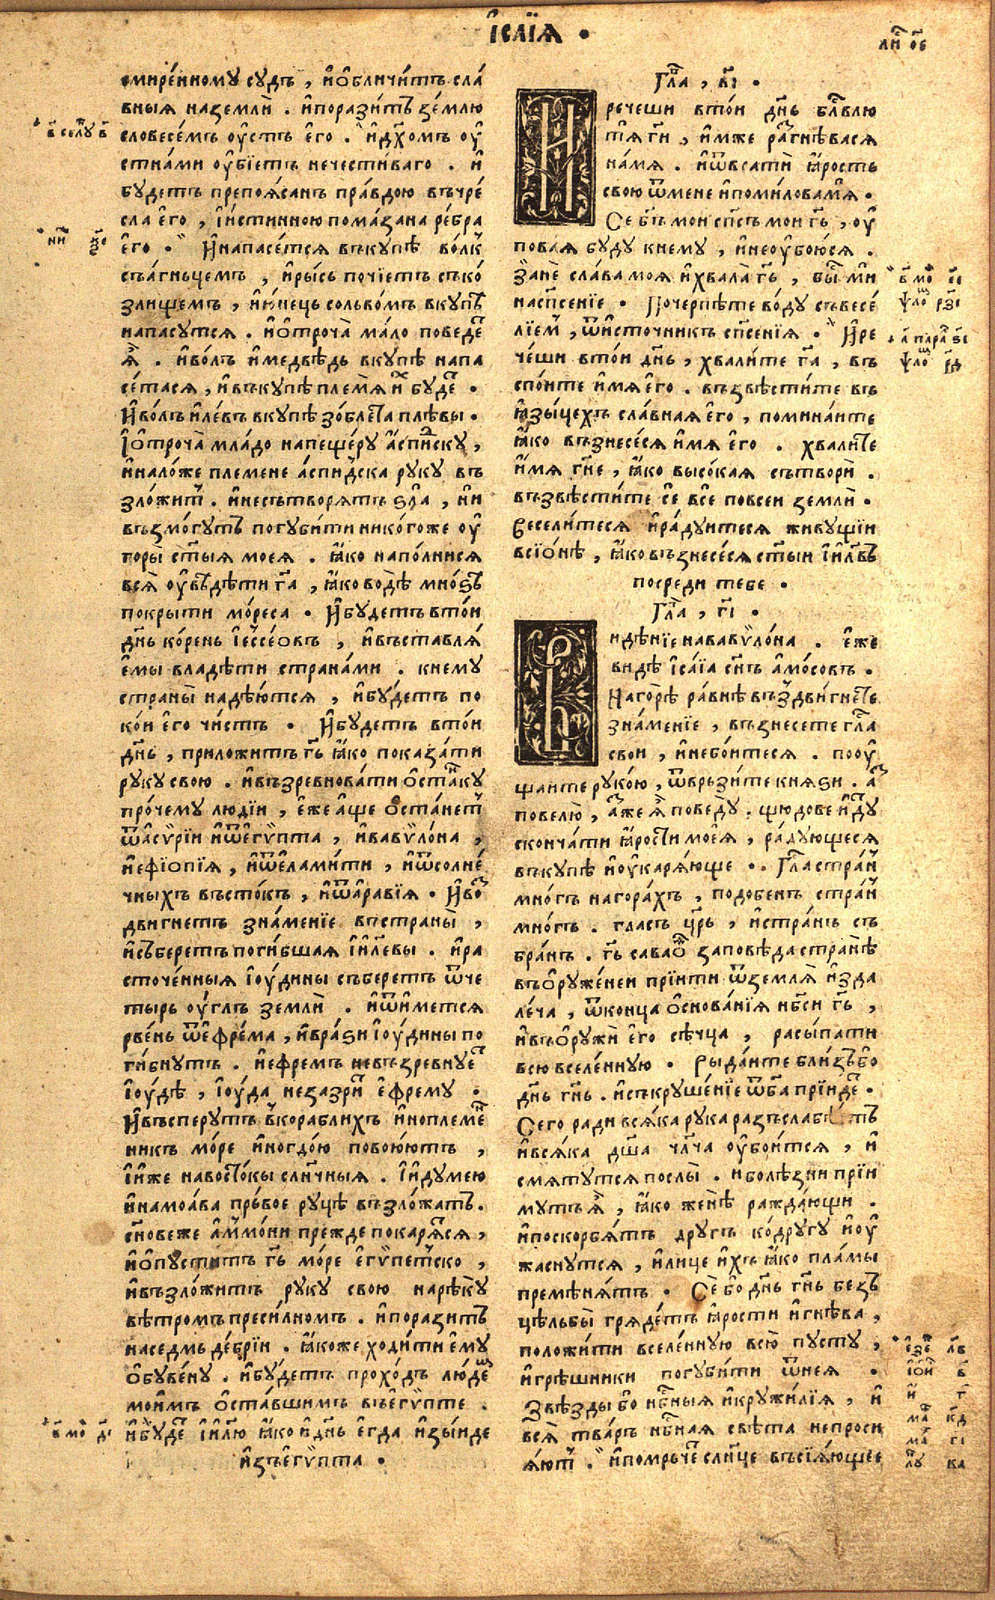 І҆саїѧ .
ли́ ѻ҃є
смире́нному судъ , и҆ѻ҆бличи́тъ сла́
вныѧ наземлѝ . и҆порази́тъ зе́млю
словесе́мъ ѹ҆стъ е҆го̀ . и҆д҃хомъ ѹ҆
стна́ми ѹ҆бїетъ нечести́ваго . и҆
бу́детъ препоѧ́санъ пра́вдою въчре́
сла е҆го̀ , і҆и́стинною пома́зана ре́бра
е҆го̀ . И҆напасе́тсѧ въку́пѣ во́лкъ
съа́гньцемъ , и҆ры́сь почїетъ съко́
злищемъ , и҆ю҆нець сольво́мъ вку́пѣ
напасу́тсѧ . и҆ѻ҆троча̀ ма́ло поведе́
ѧ҆̀ . и҆во́лъ и҆медвѣ́дь вку́пѣ напа
се́тасѧ , и҆въку́пѣ пле́мѧ и҆ бу́де .
И҆во́лъ и҆ле́въ вку́пѣ зо́блета пле́вы .
І҆ѻ҆троча̀ мла́до напеще́ру а҆спи́ску ,
и҆нало́же пле́мене а҆спи́дска ру́ку въ
зло́жит . и҆несътворѧ́тъ ѕла̀ , ни
възмо́гутъ погуби́ти нико́гоже ѹ҆
поры̀ ст҃ыѧ моеѧ̀ . ꙗ҆ко напо́лнисѧ
всѧ̀ ѹ҆вѣ́дѣти г҃а , ꙗ҆ко водѣ̀ мно́зѣ
покры́ти мо́реса . И҆бу́детъ вто́и
дн҃ь ко́рень і҆ессе́ѻвъ , и҆въставлѧ́
е҆мы владѣ́ти страна́ми . кнему̀
страны̀ надѣ́ютсѧ , и҆бу́детъ по
ко́и е҆го̀ чи́стъ . И҆бу́детъ вто́и
дн҃ь , приложи́тъ г҃ь ꙗ҆ко показа́ти
ру́ку свою̀ . и҆възревнова́ти ѻ҆ста́нку
про́чему лю́дїи , е҆же а҆ще ѻ҆ста́нет
ѿа҆сѷрїи и҆ѿе҆гѷпта , и҆вавѷло́на ,
и҆ефїо́пїѧ , и҆ѿе҆лами́ти , и҆ѿсолне́
чныхъ въсто́къ , и҆ѿа҆ра́вїѧ . И҆воз
дви́гнетъ зна́менїе встраны̀ ,
и҆събере́тъ поги́бшаѧ і҆и҃левы . и҆ра
сточе́нныѧ і҆ѹ́дины събере́тъ ѿче
ты́рь ѹ҆́глъ землѝ . и҆ѿи́метсѧ
рве́нь ѿе҆фре́ма , и҆врази̑ і҆ѹ́дины по
ги́бнутъ . и҆ефре́мъ невъзревну́ет
і҆ѹ́дѣ , і҆ѹ́да незазри́т е҆фре́му .
И҆въспе́рутъ в҆кора́блихъ и҆ноплеме́н
никъ мо́ре и҆ногдо́ю повою́ютъ ,
і҆и́же навосто́кы сл҃нчныѧ . І҆и҆думе́ю
и҆намоа́ва пръво́е ру́цѣ възло́жатъ .
сн҃овеже а҆ммо́ни пре́жде покарѧ́тсѧ ,
и҆ѻ҆пусти́тъ г҃ь мо́ре е҆гѷпе́тско ,
и҆възло́житъ ру́ку свою̀ нарѣ́ку
вѣ́тромъ преси́лномъ . и҆порази́тъ
насе́дмь де́брїи . ꙗ҆коже ходи́ти е҆му
ѻ҆буве́ну . и҆бу́детъ прохо́дъ лю́дем
мои́мъ ѻ҆ста́вшимъ въе҆гѷпте .
и҆бу́де і҆и҃лю ꙗ҆ко и҆дн҃ь е҆гда̀ и҆зы́иде
и҆зъе҆гѷпта .
Гл҃а , в҃і .
И҆речеши вто́и дн҃ь бл҃влю
тѧ̀ г҃и , и҆мже разгнѣ́васѧ
на́мѧ . и҆ѿвсати̑ ꙗ҆рость
свою̀ ѿменѐ и҆поми́ловамѧ .
Се б҃ъ мои сп҃съ мои г҃ь , ѹ҆
пова́ѧ бу́ду кнему̀ , и҆неѹ҆бою́сѧ .
Занѐ сла́ва моѧ̀ и҆хвала̀ г҃ь , бы́ ми́
насп҃се́нїе . Почерпѣ́те во́ду съвесе́
лїем , ѿи҆сто́чникъ сп҃се́нїѧ . И҆ре
че́ши вто́и дн҃ь , хвали́те г҃а , въ
спо́ите и҆мѧ е҆го̀ . възвѣсти́те въ
ꙗ҆зы́цехъ сла́внаѧ е҆го̀ , помина́ите
ꙗ҆ко възнесе́сѧ и҆мѧ е҆го̀ . хвали́те
и҆мѧ г҃не , ꙗ҆ко высо́каѧ сътворѝ .
възвѣсти́те сѐ всѐ повсе́и землѝ .
Весели́тесѧ и҆ра́дуитесѧ живу́щїи
всїѻ́нѣ , ꙗ҆ко възнесе́сѧ ст҃ыи і҆и҃лвъ
посредѝ тебѐ .
Гл҃а , г҃і .
Видѣ́нїе нававѷло́на . е҆же
ви́дѣ і҆са́їа сн҃ъ а҆мо́совъ .
Нагорѣ̀ ра́внѣ въздви́гнете
зна́менїе , възнесе́те гла́
свои , и҆небо́итесѧ . поѹ҆
ща́ите руко́ю , ѿвръзи́те кнѧ́ѕи . а҆з
повелю̀ , а҆́зже ѧ҆̀ поведу̀ . щю́дове и҆ду́
сконча́ти ꙗ҆рости моеѧ̀ , ра́дующесѧ
въку́пѣ и҆ѹ҆карѧ́юще . Гла́ стра́н
мно́гъ нагора́хъ , подо́бенъ стра́н
мно́гъ . гла́съ цр҃ь , и҆стра́нъ съ
бра́нъ . г҃ь савао́ѳ заповѣ́да стра́нѣ
въѻ҆руже́неи прїити̑ ѿземлѧ̀ и҆зда
ле́ча , ѿконца̀ ѻ҆снова́нїѧ нб҃си г҃ь ,
и҆въѻ҆ружи̑ е҆го̀ сѣ́чца , расы́пати
всю̀ вселе́нную . Рыда́ите бли́зъбо
дн҃ь г҃нь . и҆съкруше́нїе ѿб҃а прїи́де .
Сего̀ ра́ди всѧ́ка рука̀ разъслабѣ́етъ
и҆всѧ́ка дш҃а чл҃ча ѹ҆бои́тсѧ , и҆
смѧту́тсѧ послы̀ . и҆болѣ́зни прїи́
мутъ ѧ҆̀ , ꙗ҆ко женѣ̀ ражда́ющи .
и҆поскорбѧ́тъ дру́гъ ко́другу и҆ѹ҆
жа́снутсѧ , и҆лицѐ и҆хъ ꙗ҆ко пла́мы
премѣнѧ́тъ . Се́ бо дн҃ь г҃нь безъ
цѣльбы̀ грѧде́тъ ꙗ҆рости и҆гнѣ́ва ,
положи́ти вселе́нную всю̀ пу́сту ,
и҆грѣ́шники погуби́ти ѿнеѧ̀ .
Звѣ́зды бо нб҃ныѧ и҆кружи́лїѧ , и҆
всѧ̀ тва́ръ нб҃наѧ свѣ́та непроси
ѧ́ют . и҆помръче́ сл҃нце въсїѧ́ющее
в҃ селу́ в҃
в҃ мо́ є҃і
ѱло́ рз҃і
а҃ пара́ ѕ҃і
ѱло́ р҃д
в҃ мо́ д҃і
е҆зе́ л҃в
і҆ои́ в҃
и҆ г҃
ма́ к҃д
ма́ г҃і
лу́ к҃а